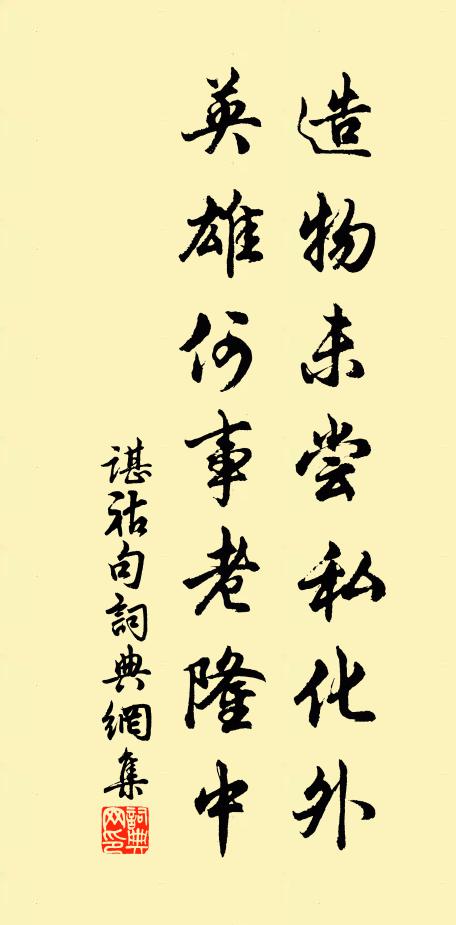 造物未尝私化外
英雄何事老隆中
谌祜句詞典網集
詞典
网印